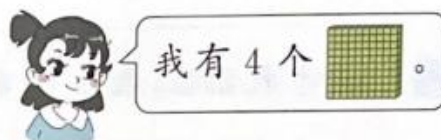 我有 4 个 。